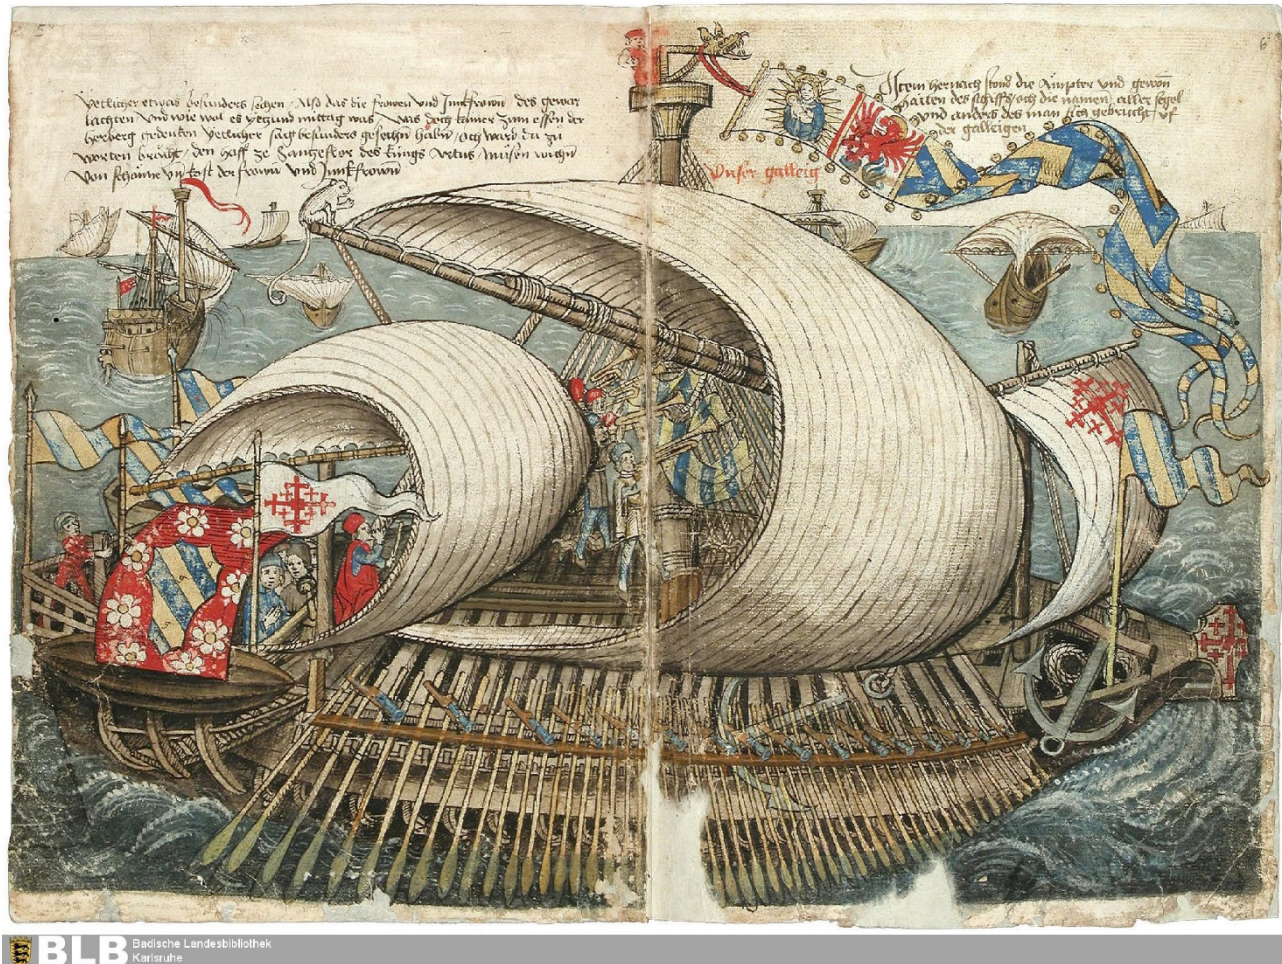 5
6
yetlicher etwas besunders sechen Also das die frowen und Junkfrown des gewar
lachten und wie wol es yezund mittag was / was doch kainer zum essen der
herberg gedenken yetlicher sagt besunders gesechen haben / och ward da zu
worten bracht / den hoff ze des küngs Artus
von schöne der frowen und Junkfrowen
Item hernach stond die Ämpter und gewon
haiten des schiffs / och die namen aller segel
und anders des man sich gebrucht uf
der galleigen
Unser galleig
BLB
Badische Landesbibliothek
Karlsruhe